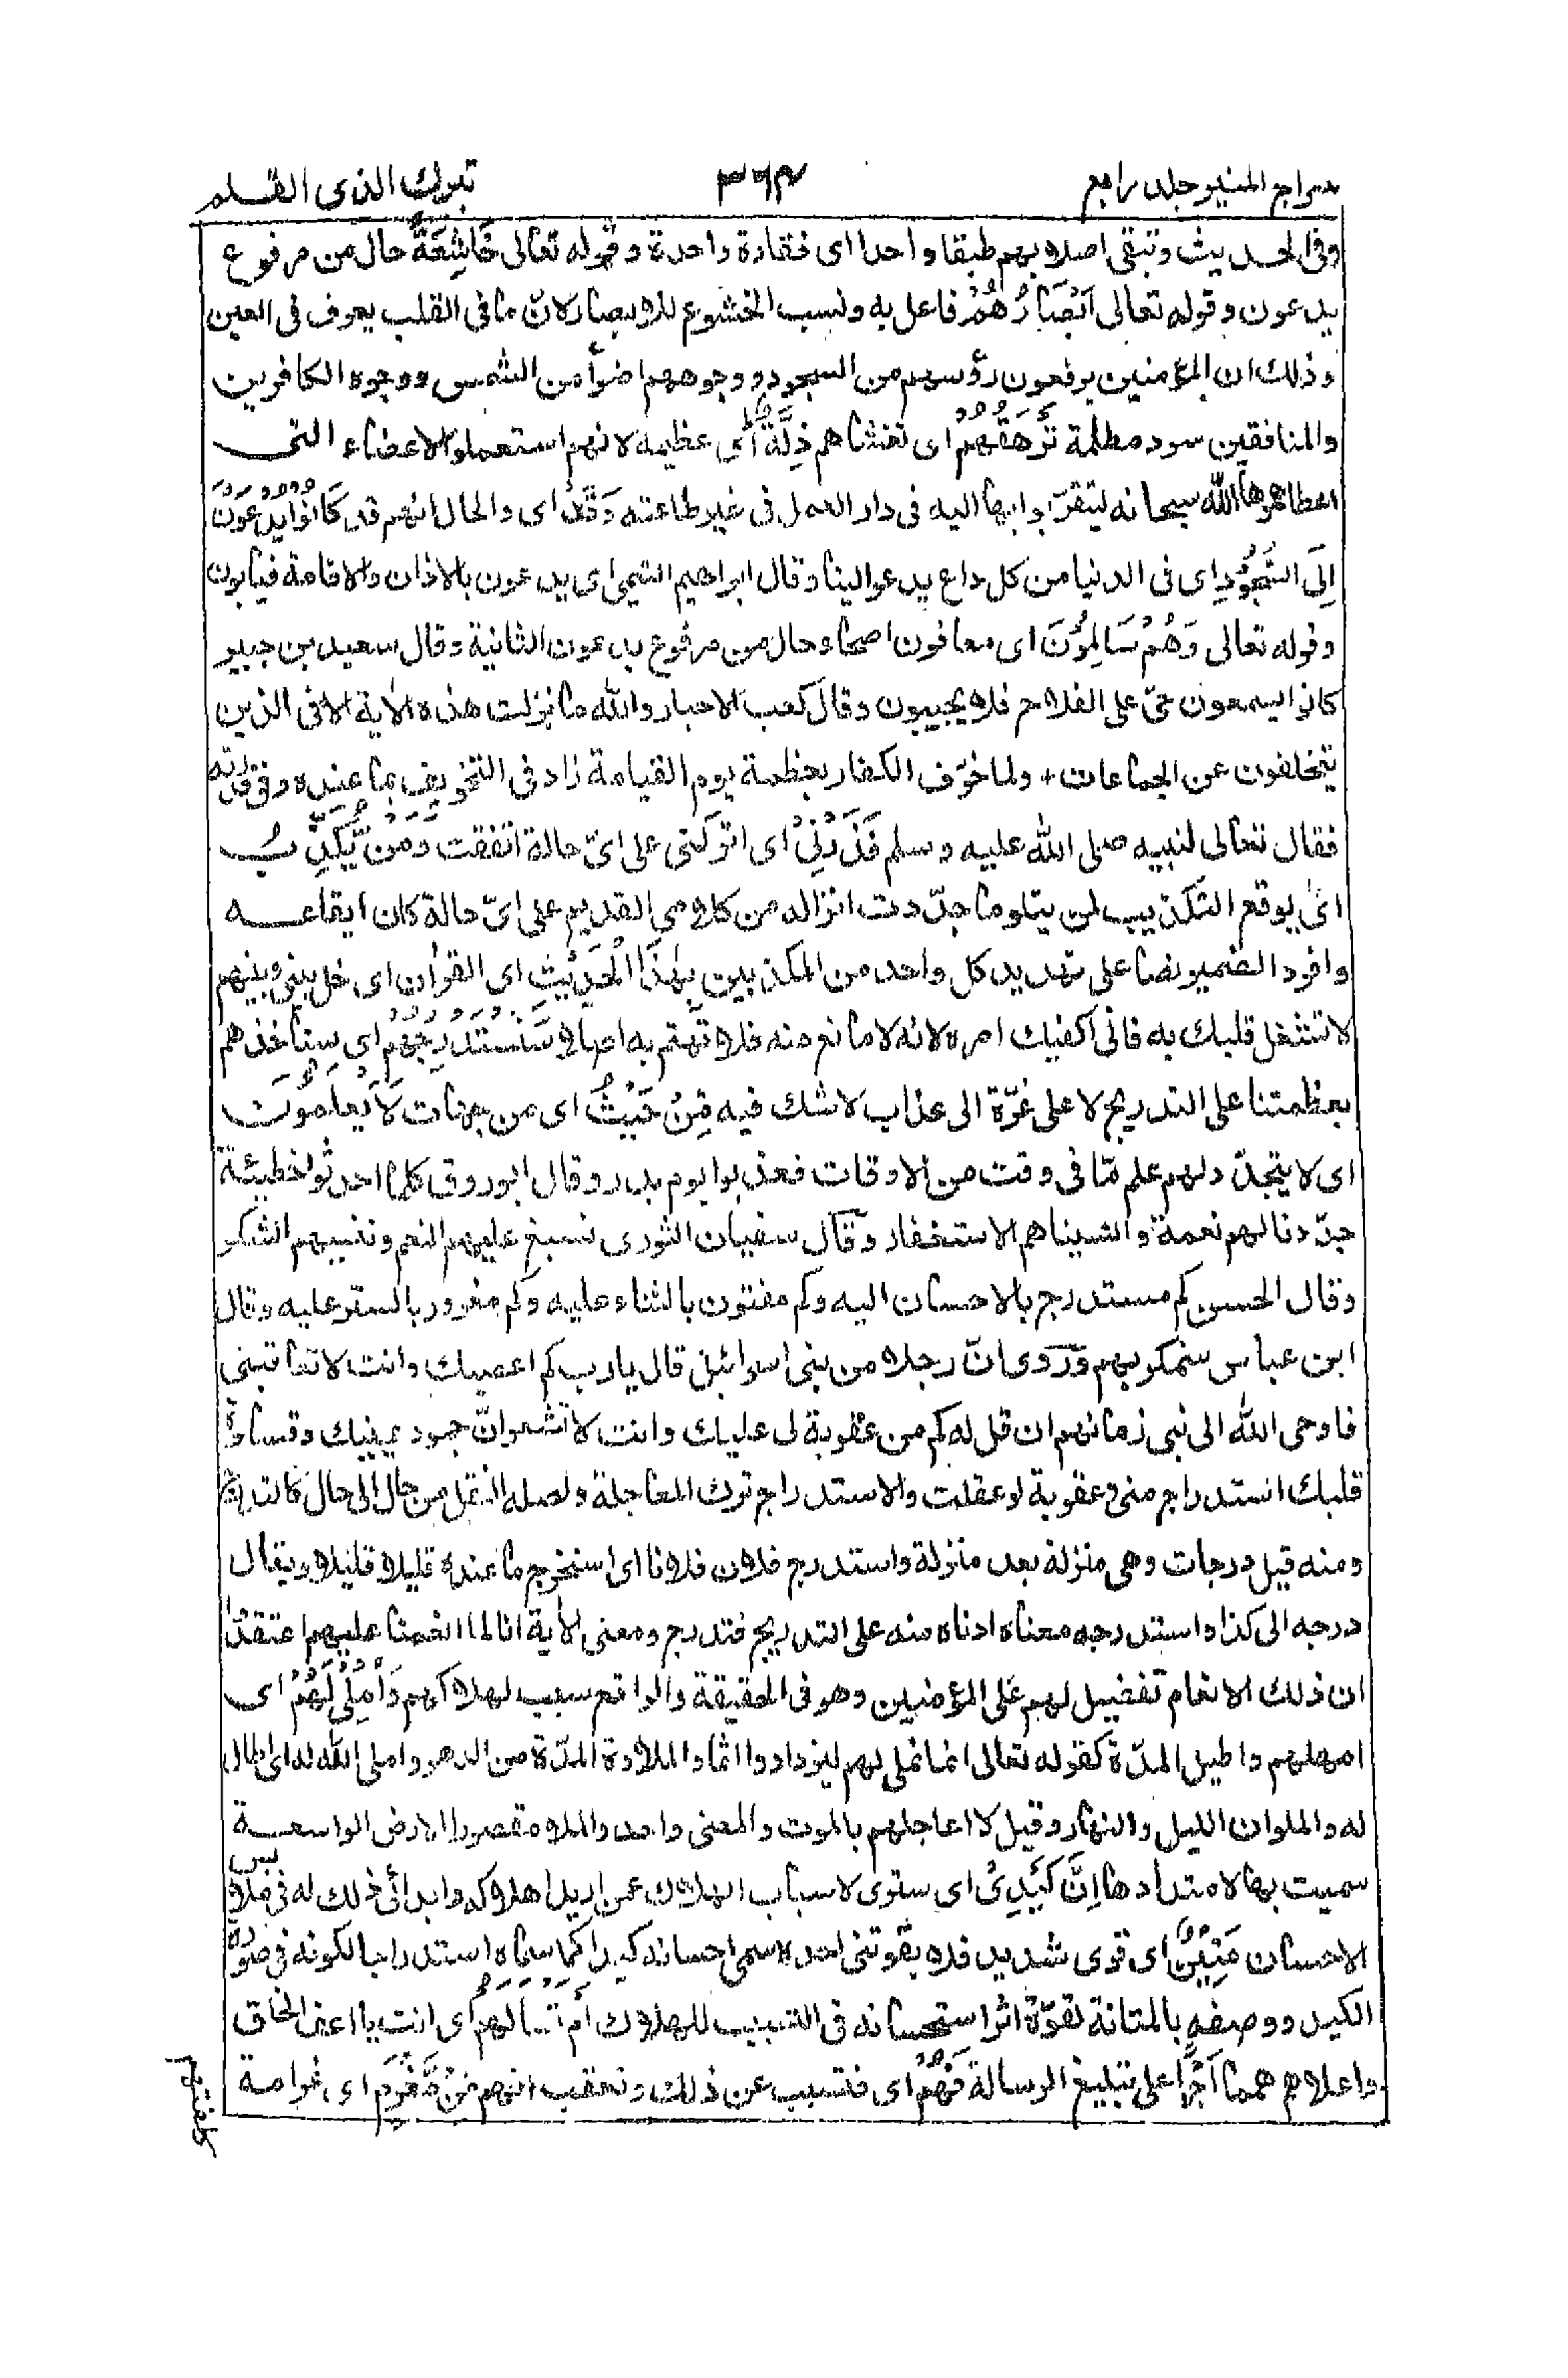 سراج المنير جلد رابع
۳۶۴
تبرك الذى القلم
وفى الحديث وتبقى اصلابهم طبقا واحدا اى فقارة واحدة وقوله تعالى خَاشِعَةً حال من مرفوع
يدعون وقوله تعالى اَبْصَارُهُمْ فاعل به ونسب الخشوع للابصار لانّ ما فى القلب يعرف فى العين
وذلك ان المؤمنين يرفعون رؤسهم من السجود ووجوههم اضوأ من الشمس ووجوه الكافرين
والمنافقين سود مظلمة تَرْهَقُهُمْ اى تغشاهم ذِلَّةٌ اى عظيمه لانهم استعملوا الاعضاء التى
اعطاهموها الله سبحانه ليتقرّبوا بها اليه فى دار العمل فى غير طاعته وَقَدْ اى والحال انهم قد كَانُوْا يُدْعَوْنَ
اِلَى السُّجُوْدِ اى فى الدنيا من كل داع يدعو الينا وقال ابراهيم التيمى اى يدعون بالاذان والاقامة فيابون
وقوله تعالى وَهُمْ سَالِمُوْنَ اى معافون اصحاء حال من مرفوع يدعون الثانية وقال سعيد بن جبير
كانوا يسمعون حىّ على الفلاح فلا يجيبون وقال كعب الاحبار والله ما نزلت هذه الاية الا فى الذين
يتخلفون عن الجماعات + ولما خوّف الكفار بعظمة يوم القيامة زاد فى التخويف بما عنده وفى قدرته
فقال تعالى لنبيه صلى الله عليه وسلم فَذَرْنِيْ اى اتركنى على اىّ حالة اتفقت وَمَنْ يُّكَذِّبُ
اى يوقع التكذيب لمن يتلو ما جدّدت انزاله من كلامى القديم على اىّ حالة كان ايقاعه
وافرد الضمير نصا على تهديد كل واحد من المكذبين بِهٰذَا الْحَدِيْثِ اى القرأن اى خل بينى وبينهم
لا تشغل قلبك به فانى اكفيك امره لانه لا مانع منه فلا تهتم به اصلا سَنَسْتَدْرِجُهُمْ اى سناخذهم
بعظمتنا على التدريج لا على غرّة الى عذاب لا شك فيه مِّنْ حَيْثُ اى من جهات لَا يَعْلَمُوْنَ
اى لا يتجدّد لهم علم مّا فى وقت من الاوقات فعذبوا يوم بدر وقال ابو روق كلما احدثوا خطيئة
جدّدنا لهم نعمة وانسيناهم الاستغفار وقال سفيان الثورى نسبغ عليهم النعم وننسيهم الشكر
وقال الحسن كم مستدرج بالاحسان اليه وكم مفتون بالثناء عليه وكم مغرور بالستر عليه وقال
ابن عباس سنمكر بهم وروى انّ رجلا من بنى اسرائيل قال يا رب كم اعصيك وانت لا تعاقبنى
فاوحى الله الى نبى زمانهم ان قل له كم من عقوبة لى عليك وانت لا تشعر انّ جمود عينيك وقساوة
قلبك استدراج منى وعقوبة لو عقلت والاستدراج ترك المعاجلة واصله النقل من حال الى حال كالتدرج
ومنه قيل درجات وهى منزلة بعد منزلة واستدرج فلان فلانا اى استخرج ما عنده قليلا قليلا ويقال
درجه الى كذا واستدرجه معناه ادناه منه على التدريج فتدرج ومعنى الاية انا لما انعمنا عليهم اعتقدوا
ان ذلك الانعام تفضيل لهم على المؤمنين وهو فى الحقيقة والواقع سبب لهلاكهم وَاُمْلِيْ لَهُمْ اى
امهلهم واطيل المدّة كقوله تعالى انما نملى لهم ليزدادوا اثما والملاوة المدّة من الدهر واملى الله له اى اطال
له والملوان الليل والنهار وقيل لا اعاجلهم بالموت والمعنى واحد والملا مقصورا الارض الواسعة
سميت بها لامتدادها اِنَّ كَيْدِيْ اى سترى لاسباب الهلاك عمن اريد اهلاكه وابدائى ذلك له فى ملابس
الاحسان مَتِيْنٌ اى قوى شديد فلا يفوتنى احد وسمى احسانه كيدا كما سماه استدراجا لكونه فى صورة
الكيد ووصفه بالمتانة لقوّة اثر استحسانه فى التسبيب للهلاك اَمْ تَسْاَلُهُمْ اى انت يا اعز الخلق
واعلاهم همما اَجْرًا على تبليغ الرسالة فَهُمْ اى فتسبب عن ذلك وتعقب انهم مِّنْ مَّغْرَمٍ اى غرامة